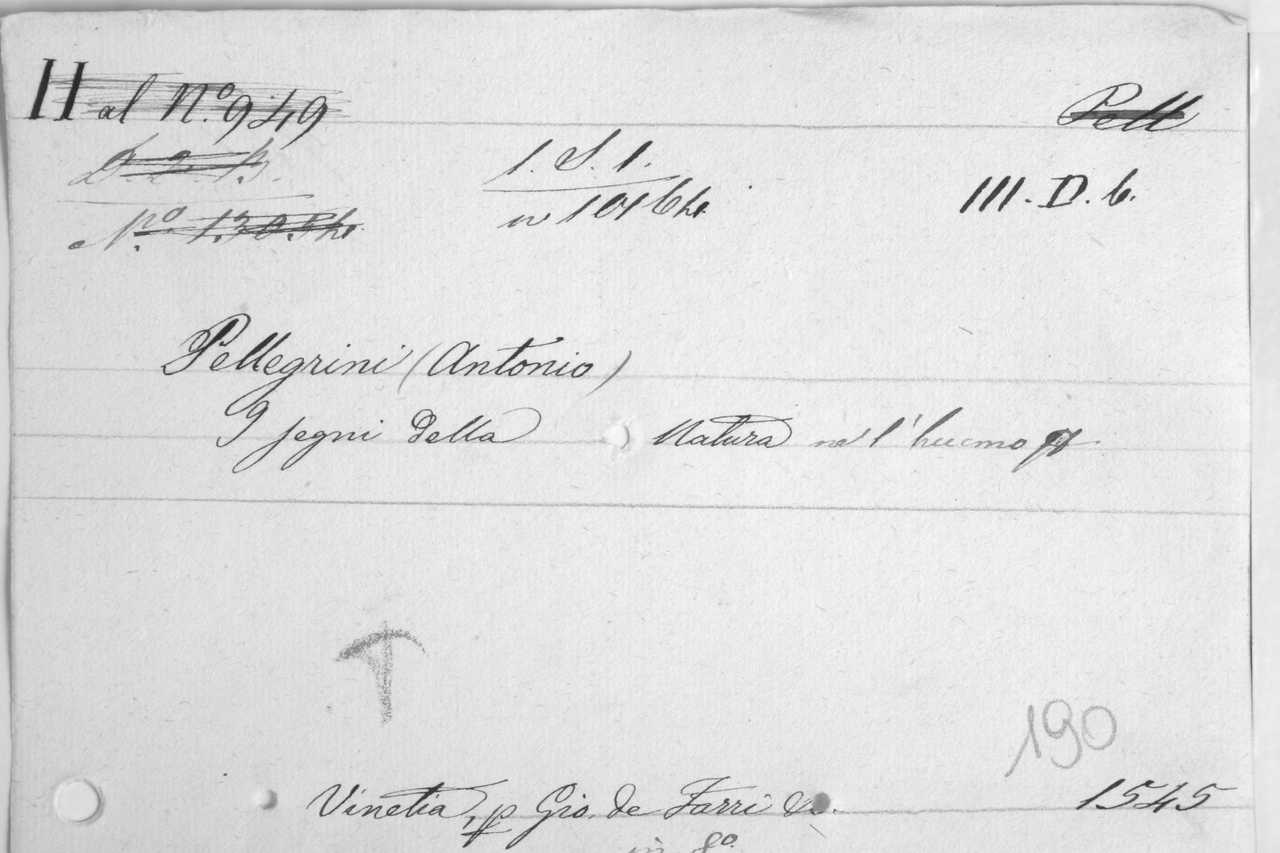 H al N.º 949
Pell
D. 2. 13.
1. S. 1.
III. D. 6.
Pellegrini (Antonio)
I segni della Natura ne l'huomo
190
Vinetia, p Gio. de Farri &. 1545
in 8º